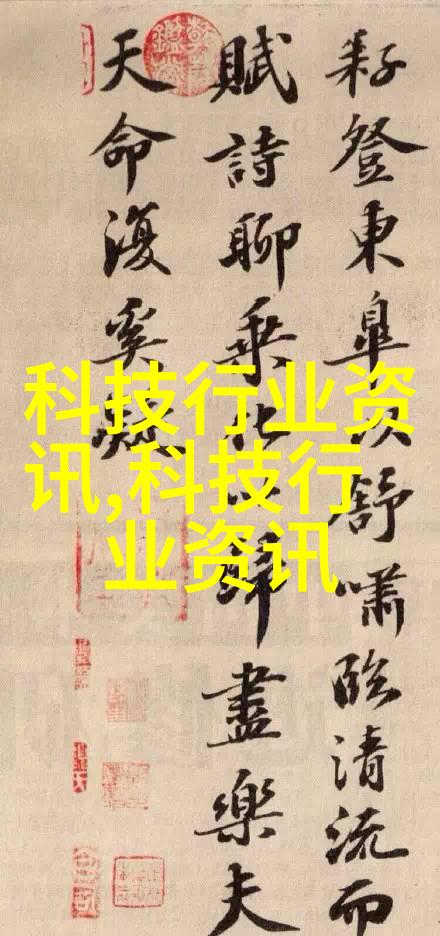 耔登東皐以舒嘯臨清流而
賦詩聊乘化以歸盡樂夫
天命復奚疑
科技行业资
讯,科技行
业资讯